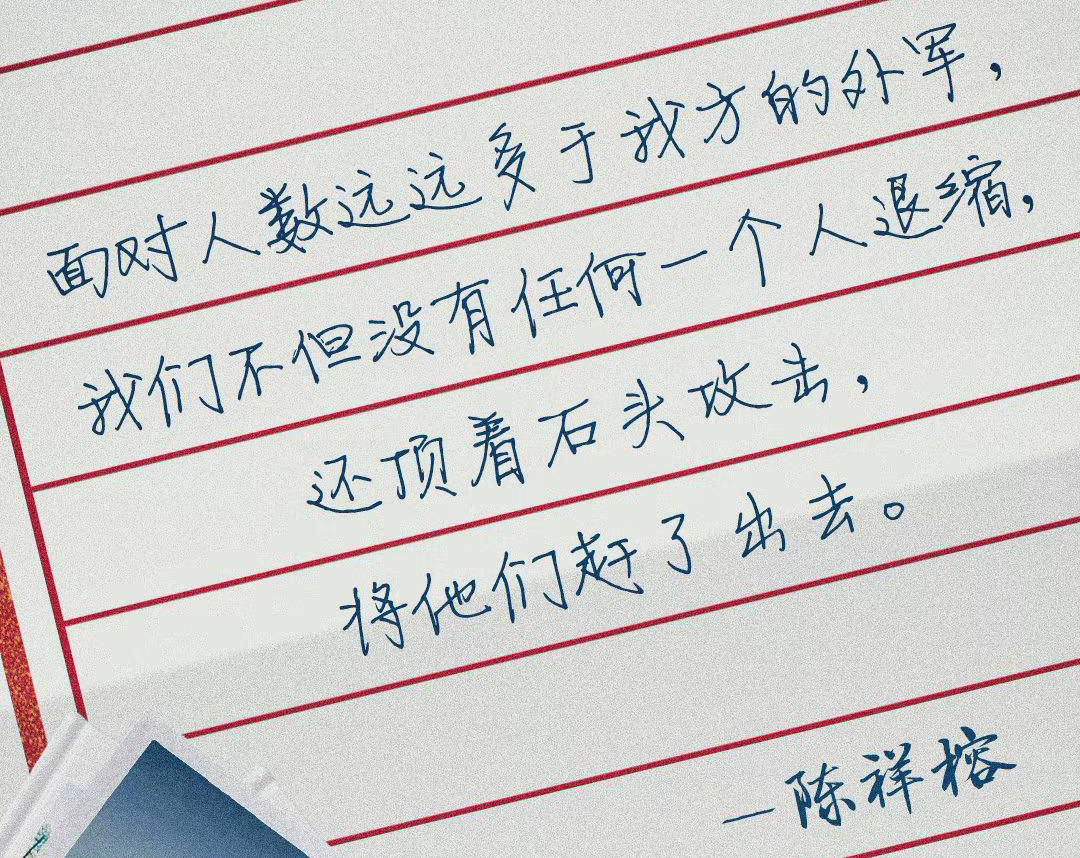 面对人数远远多于我方的外军，
我们不但没有任何一个人退缩，
还顶着石头攻击，
将他们赶了出去。
—陈祥榕